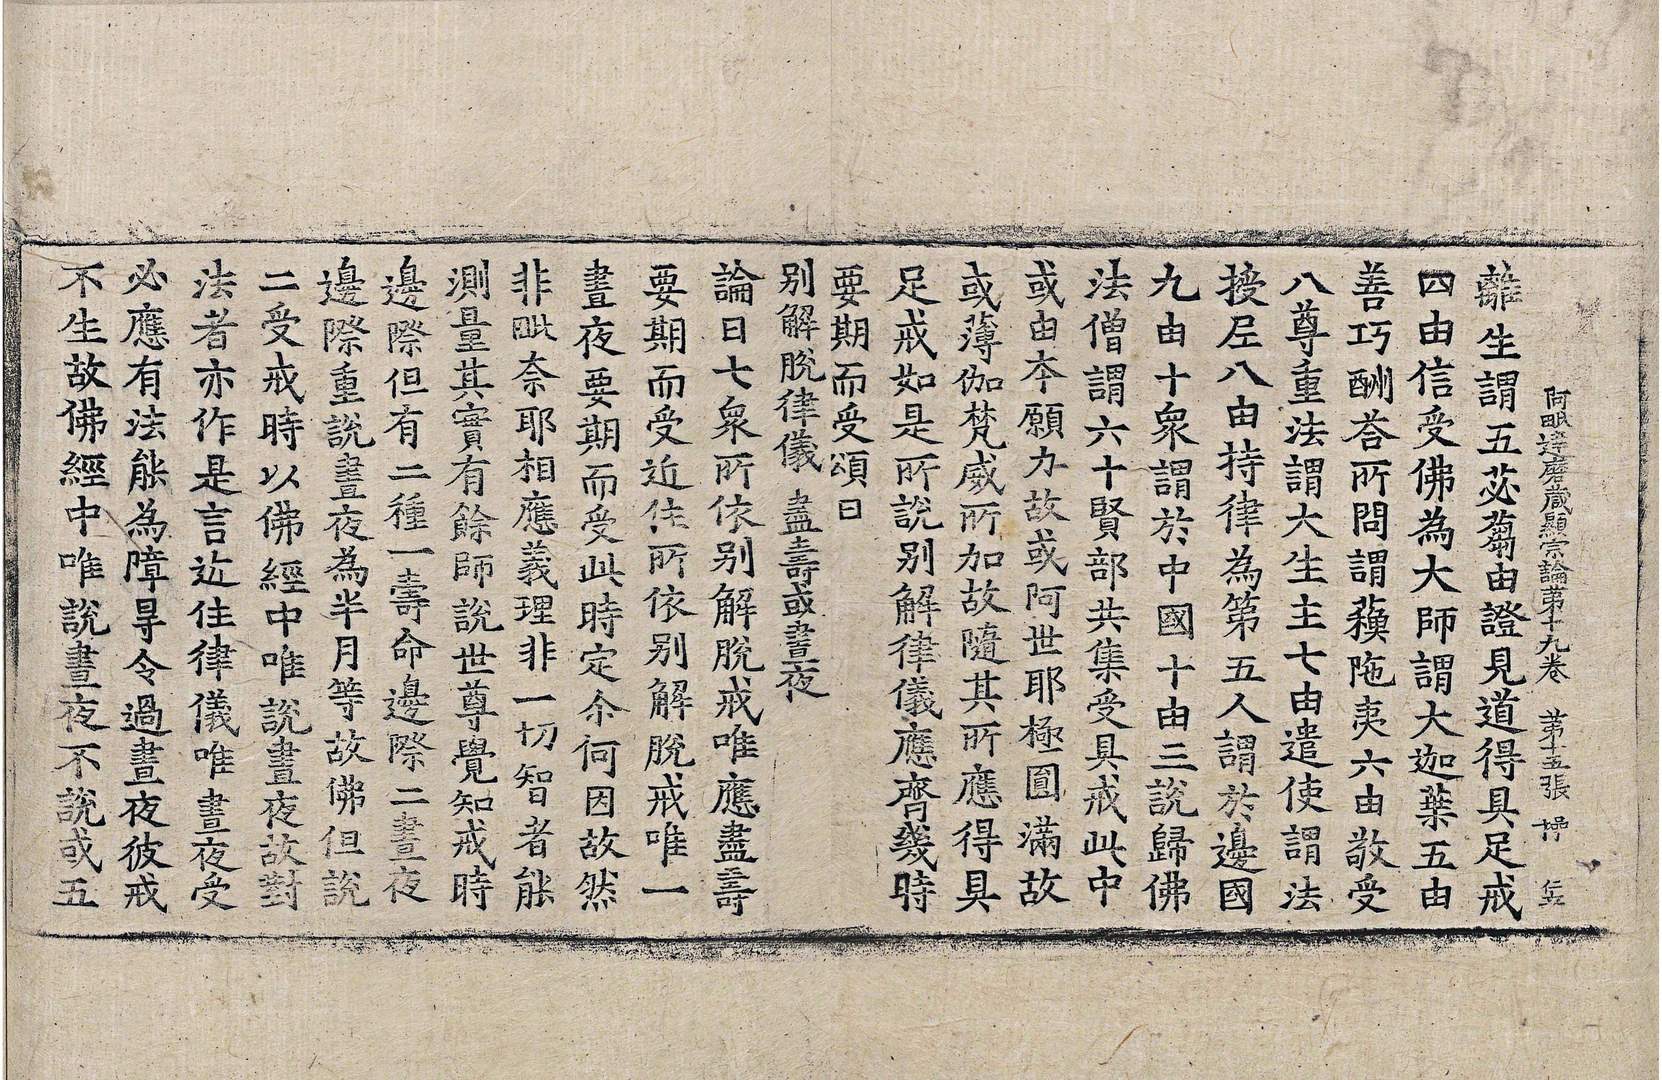 阿毗達磨藏顯宗論第十九卷　第十五張　操
離生謂五苾蒭由證見道得具足戒
四由信受佛為大師謂大迦葉五由
善巧酬荅所問謂蘓陁夷六由敬受
八尊重法謂大生主七由遣使謂法
授尼八由持律為第五人謂於邊國
九由十衆謂於中國十由三說歸佛
法僧謂六十賢部共集受具戒此中
或由本願力故或阿世耶極圓滿故
或薄伽梵威所加故隨其所應得具
足戒如是所說別解律儀應齊幾時
要期而受頌曰
別解脫律儀　盡壽或晝夜
論曰七衆所依別解脫戒唯應盡壽
要期而受近住所依別解脫戒唯一
晝夜要期而受此時定尒何因故然
非毗奈耶相應義理非一切智者能
測量其實有餘師說世尊覺知戒時
邊際但有二種一壽命邊際二晝夜
邊際重說晝夜為半月等故佛但說
二受戒時以佛經中唯說晝夜故對
法者亦作是言近住律儀唯晝夜受
必應有法能為障㝵令過晝夜彼戒
不生故佛經中唯說晝夜不說或五